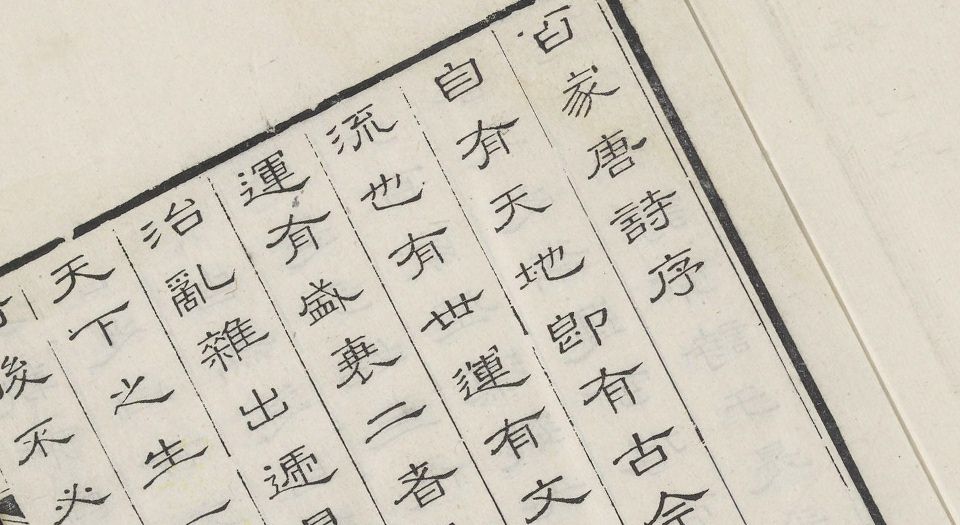 百家唐詩序
自有天地即有古今
流也有世運有文
運有盛衰二者
治亂雜出遞
天下之生一
後不必